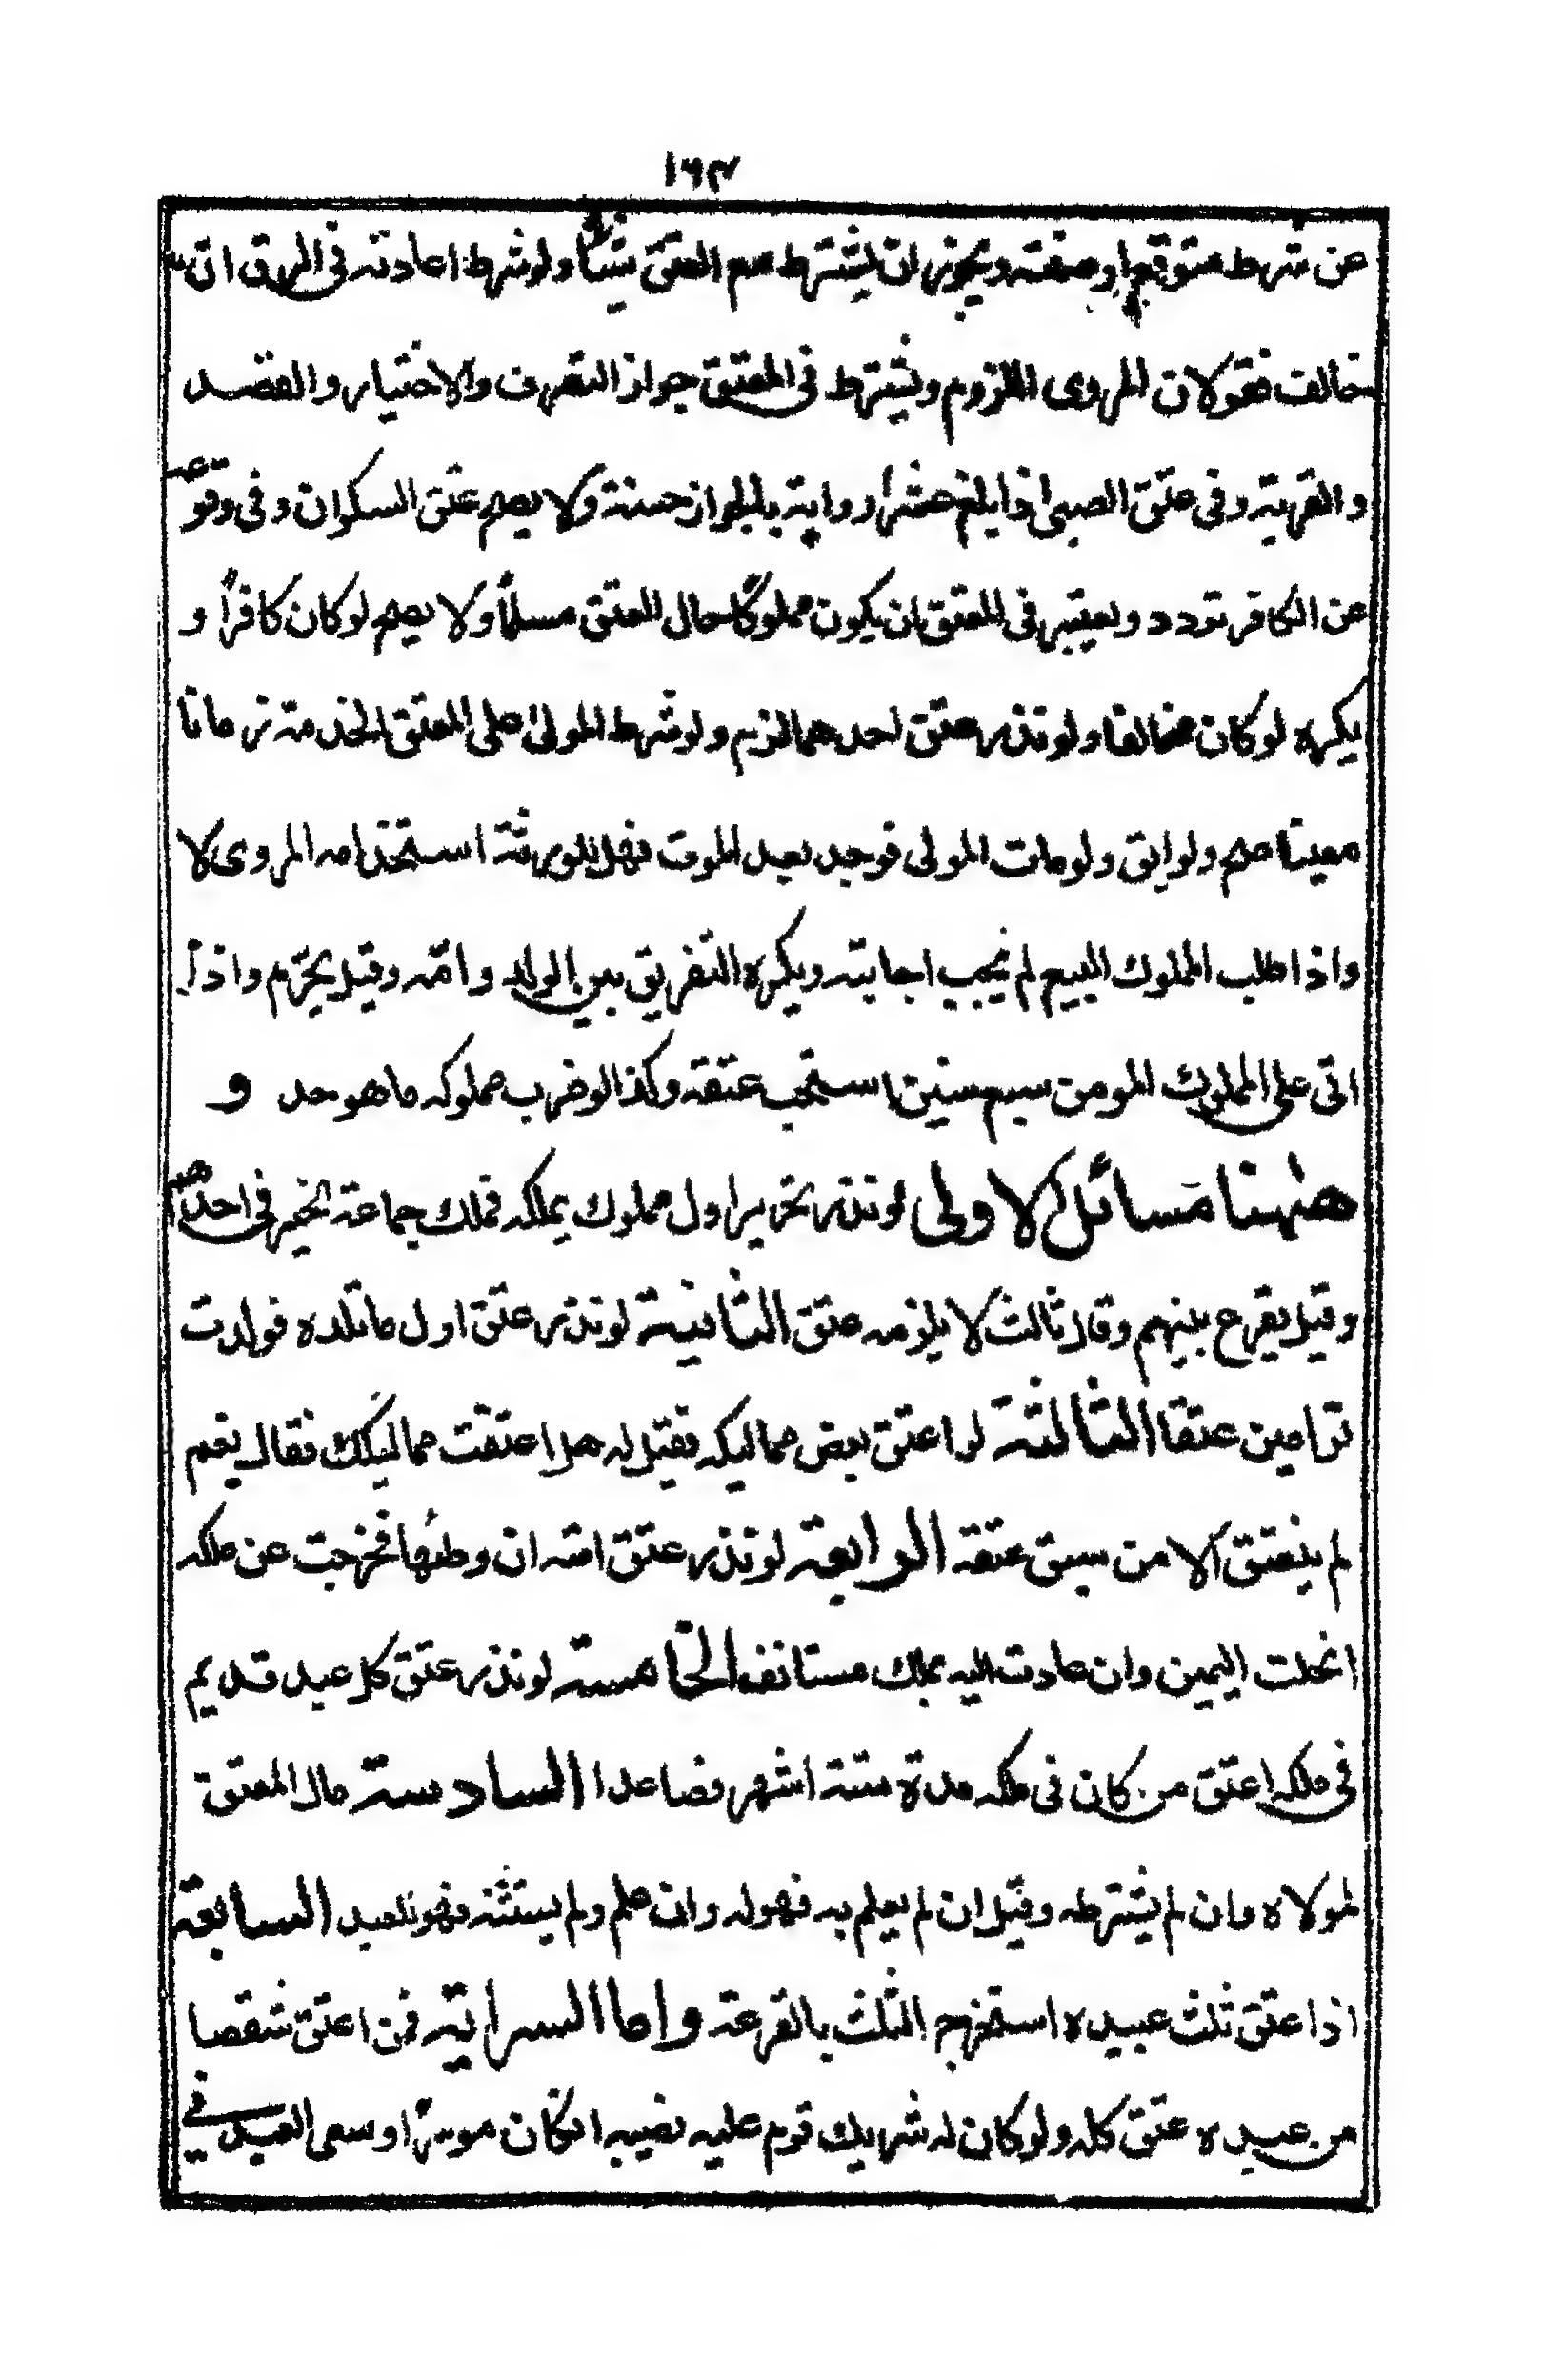 ١٦٣
عن شرط متوقع او صفة ويجوز ان يشترط مع العتق شيئا ولو شرط اعادته فى الرق ان
خالف فقولان المروى اللزوم ويشترط فى المعتق جواز التصرف والاختيار والقصد
والقربة وفى عتق الصبى اذا بلغ عشرا رواية بالجواز حسنة ولا يصح عتق السكران وفى وقوعه
عن الكافر تردد ويعتبر فى المعتق ان يكون مملوكا حال العتق مسلما ولا يصح لو كان كافرا و
يكره لو كان مخالفا ولو نذر عتق احدهما لزم ولو شرط المولى على المعتق الخدمة زمانا
معينا صح ولو ابق ولو مات المولى فوجد بعد الموت فهل للورثة استخدامه المروى لا
واذا طلب المملوك البيع لم يجب اجابته ويكره التفريق بين الولد وامه وقيل يحرم واذا
اتى على المملوك المومن سبع سنين استحب عتقه وكذا لو ضرب مملوكه ما هو حد و
ههنا مسائل الاولى لو نذر تحرير اول مملوك يملكه فملك جماعة تخير فى احدهم
وقيل يقرع بينهم وقال ثالث لا يلزمه عتق الثانية لو نذر عتق اول ما تلده فولدت
توامين عتقا الثالثة لو اعتق بعض مماليكه فقيل له هل اعتقت مماليكك فقال نعم
لم ينعتق الا من سبق عتقه الرابعة لو نذر عتق امته ان وطئها فخرجت عن ملكه
انحلت اليمين وان عادت اليه بملك مستانف الخامسة لو نذر عتق كل عبد قديم
فى ملكه اعتق من كان فى ملكه مدة ستة اشهر فصاعدا السادسة مال المعتق
لمولاه وان لم يشترطه وقيل ان لم يعلم به فهو له وان علم ولم يستثنه فهو للعبد السابعة
اذا عتق ثلث عبيده استخرج الثلث بالقرعة واما السراية فمن اعتق شقصا
من عبده عتق كله ولو كان له شريك قوم عليه نصيبه ان كان موسرا وسعى العبد في